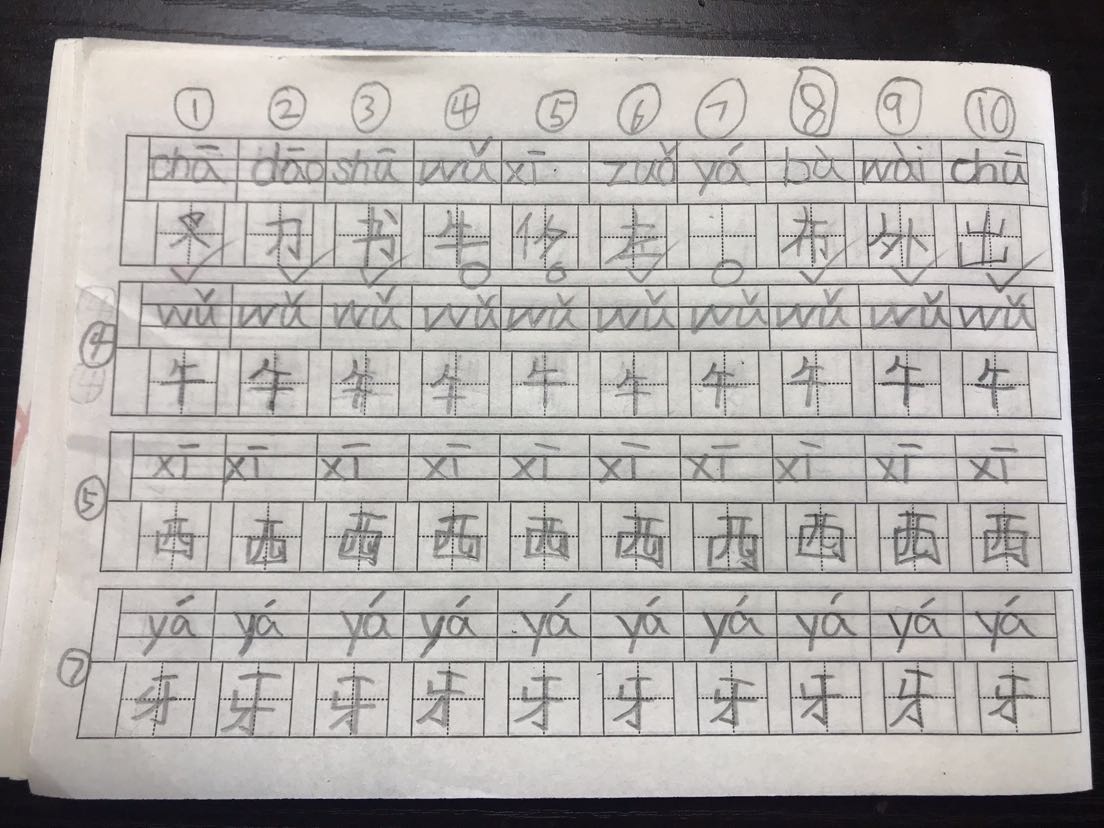 ① ② ③ ④ ⑤ ⑥ ⑦ ⑧ ⑨ ⑩
chā dāo shū wǔ xī zuǒ yá bà wài chū
刀 书 牛 左 布 外 出
wǔ wǔ wǔ wǔ wǔ wǔ wǔ wǔ wǔ wǔ
④ 午 午 午 午 午 午 午 午 午 午
xī xī xī xī xī xī xī xī xī xī
⑤ 西 西 西 西 西 西 西 西 西 西
yá yá yá yá yá yá yá yá yá yá
⑦ 牙 牙 牙 牙 牙 牙 牙 牙 牙 牙